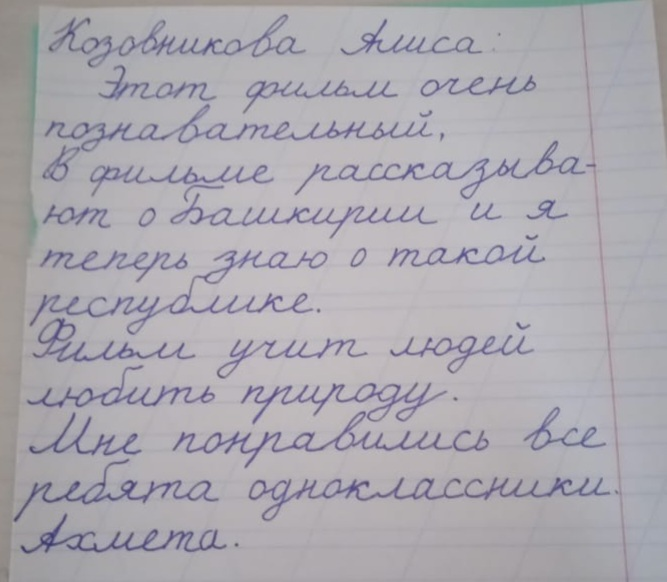 Козовникова Алиса:
Этот фильм очень
познавательный.
В фильме рассказыва-
ют о Башкирии и я
теперь знаю о такой
республике.
Фильм учит людей
любить природу.
Мне понравились все
ребята одноклассники.
Ахмета.